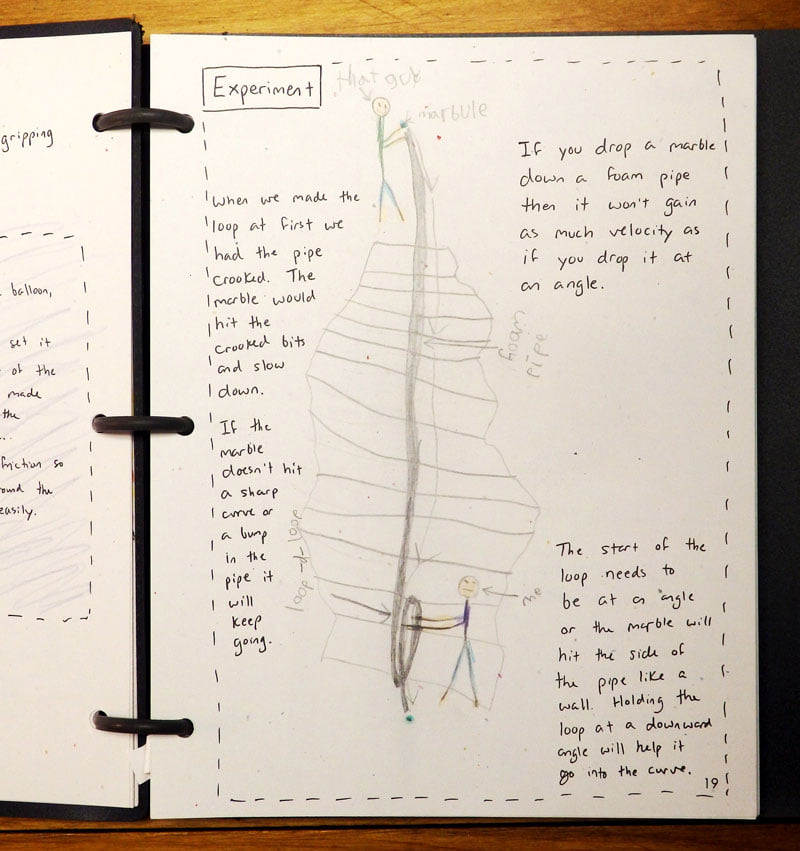 gripping
balloon,
set it
of the
made
the
friction so
ound the
easily.
Experiment
that guy
marbule
When we made the
loop at first we
had the pipe
crooked. The
marble would
hit the
crooked bits
and slow
down.
If the
marble
doesn't hit
a sharp
curve or
a bump
in the
pipe it
will
keep
going.
If you drop a marble
down a foam pipe
then it won't gain
as much velocity as
if you drop it at
an angle.
foam
pipe
loop-d-loop
me
The start of the
loop needs to
be at an angle
or the marble will
hit the side of
the pipe like a
wall. Holding the
loop at a downward
angle will help it
go into the curve.
19